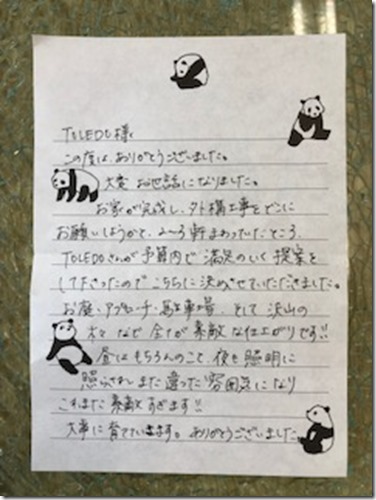 TOLEDO様
この度は、ありがとうございました。
大変お世話になりました。
お家が完成し、外構工事をどこに
お願いしようかと、2〜3軒まわっていたところ、
TOLEDOさんが予算内で満足のいく提案を
して下さったのでこちらに決めさせていただきました。
お庭、アプローチ、駐車場、そして沢山の
木々など全てが素敵な仕上がりです!!
昼はもちろんのこと、夜も照明に
照らされまた違った雰囲気になり
これまた素敵すぎます!!
大事に育てていきます。ありがとうございました